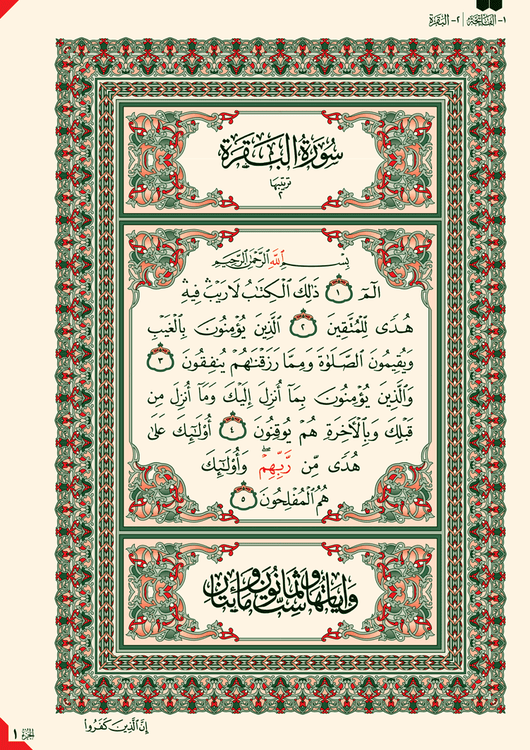 ١- الفَاتِحَة | ٢- البَقَرَة
سُورَةُ البَقَرَةِ
تَرْتِيبُهَا
٢
بِسْمِ ٱللَّهِ ٱلرَّحْمَٰنِ ٱلرَّحِيمِ
الٓمٓ ١ ذَٰلِكَ ٱلْكِتَٰبُ لَا رَيْبَۛ فِيهِۛ
هُدًى لِّلْمُتَّقِينَ ٢ ٱلَّذِينَ يُؤْمِنُونَ بِٱلْغَيْبِ
وَيُقِيمُونَ ٱلصَّلَوٰةَ وَمِمَّا رَزَقْنَٰهُمْ يُنفِقُونَ ٣
وَٱلَّذِينَ يُؤْمِنُونَ بِمَآ أُنزِلَ إِلَيْكَ وَمَآ أُنزِلَ مِن
قَبْلِكَ وَبِٱلْأٓخِرَةِ هُمْ يُوقِنُونَ ٤ أُو۟لَٰٓئِكَ عَلَىٰ
هُدًى مِّن رَّبِّهِمْۖ وَأُو۟لَٰٓئِكَ
هُمُ ٱلْمُفْلِحُونَ ٥
وَآيَاتُهَا مِائَتَانِ وَسِتٌّ وَثَمَانُونَ
إِنَّ ٱلَّذِينَ كَفَرُوا۟
الجزء ١